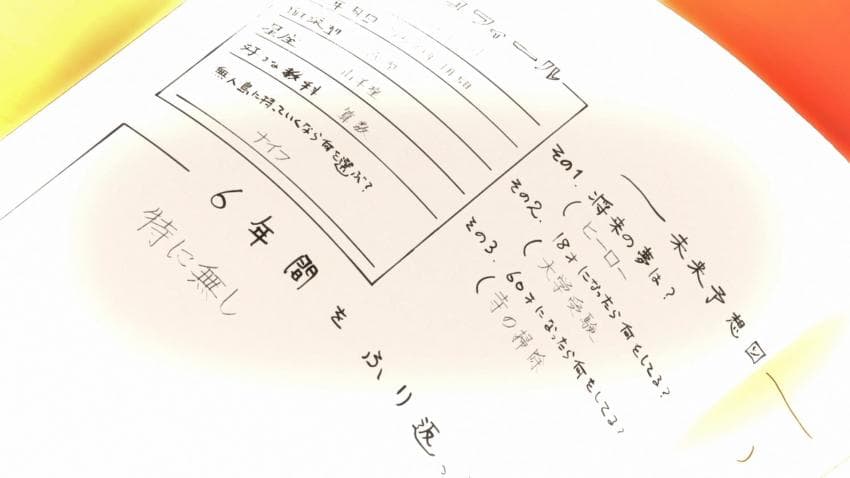 フィール
年月日
星座
山羊座
好きな教科
算数
無人島に持っていくなら何を選ぶ?
ナイフ
6年間をふり返っ
特に無し
未来予想図
その1. 将来の夢は?
(ヒーロー
その2. 18才になったら何をしてる?
(大学受験
その3. 60才になったら何をしてる?
(寺の掃除